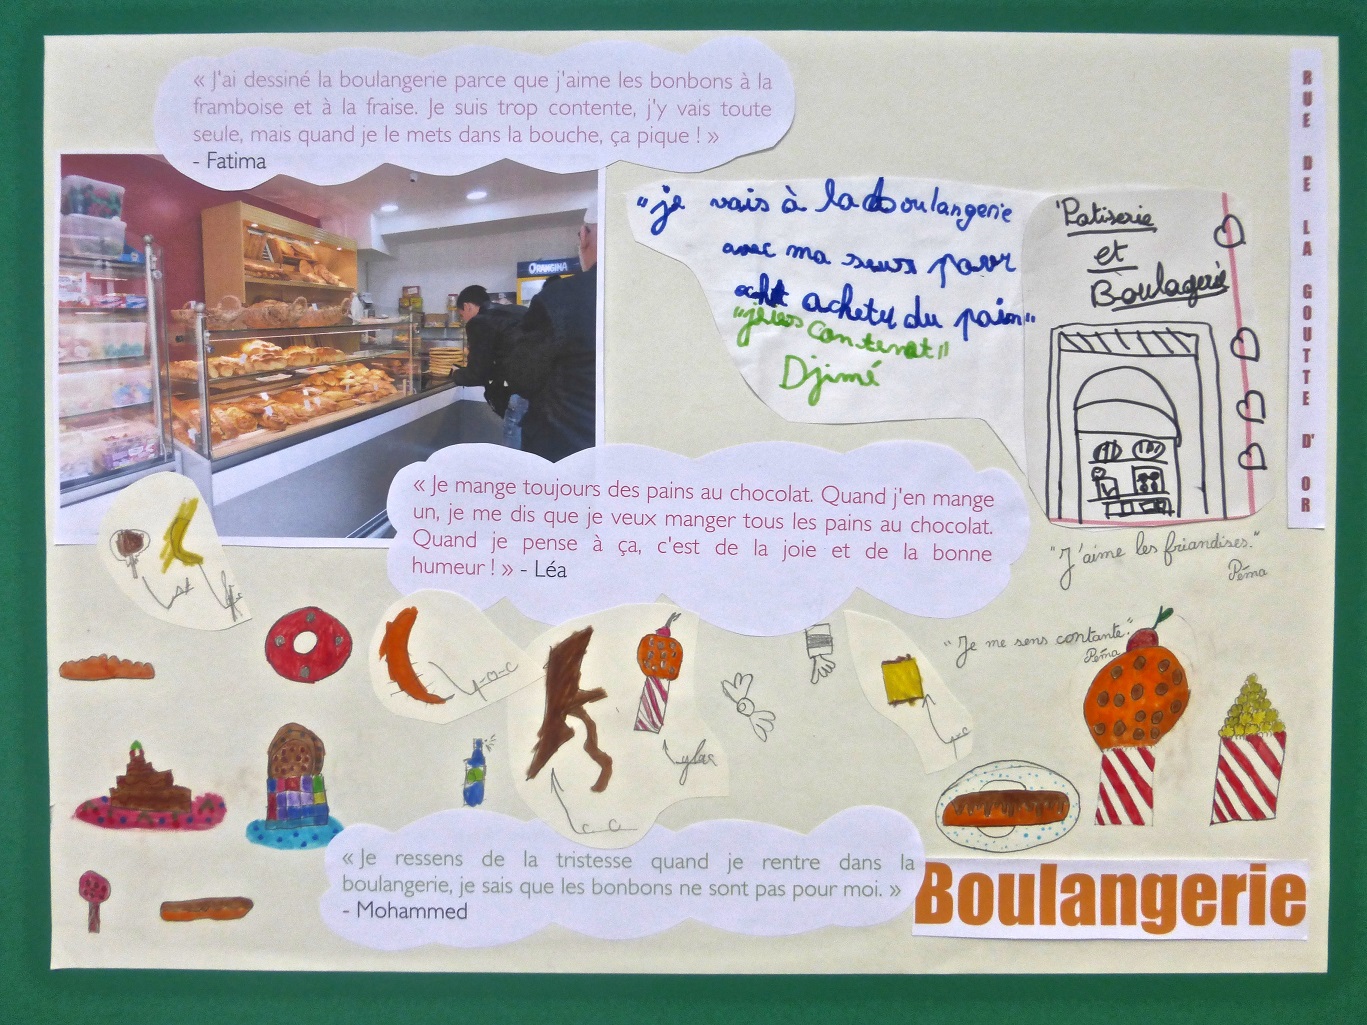 « J'ai dessiné la boulangerie parce que j'aime les bonbons à la
framboise et à la fraise. Je suis trop contente, j'y vais toute
seule, mais quand je le mets dans la bouche, ça pique ! »
- Fatima
RUE DE LA GOUTTE D'OR
ORANGINA
"je vais à la boulangerie
avec ma seurs pour
acheteu du pain"
"jeuis contenat"
Djimé
Patiserie
et
Boulagerie
« Je mange toujours des pains au chocolat. Quand j'en mange
un, je me dis que je veux manger tous les pains au chocolat.
Quand je pense à ça, c'est de la joie et de la bonne
humeur ! » - Léa
"J'aime les friandises."
Péma
"Je me sens contante".
Péma
« Je ressens de la tristesse quand je rentre dans la
boulangerie, je sais que les bonbons ne sont pas pour moi. »
- Mohammed
Boulangerie